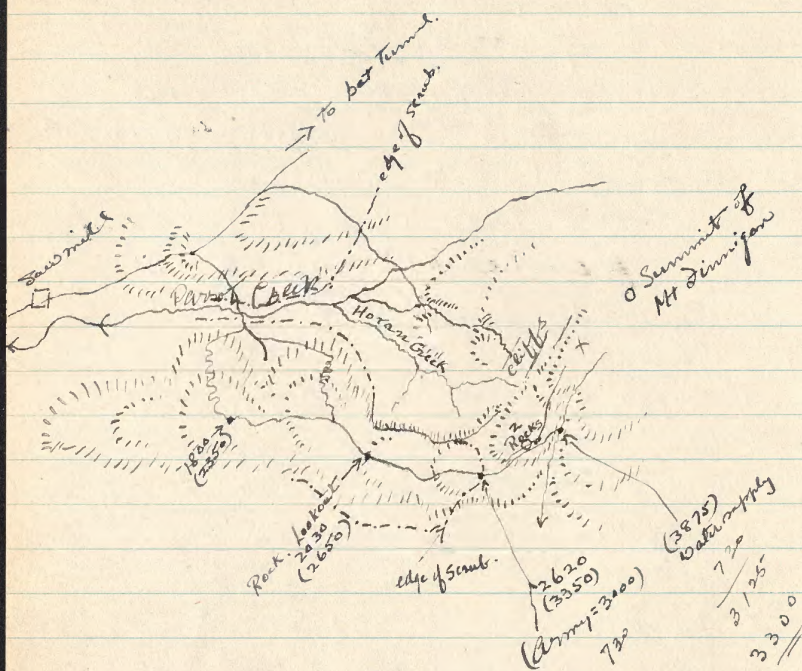 → to bat Tunnel.
edge of scrub.
Saw mill
Parrot Creek
Horan Creek
o Summit of
Mt Finnigan
cliffs
X
2
Rocks
1800
(2350)
Rock. Lookout
2030
(2650)
edge of scrub.
2620
(3350)
(Army = 3000)
730
(3875)
Water supply
720
3125
3300